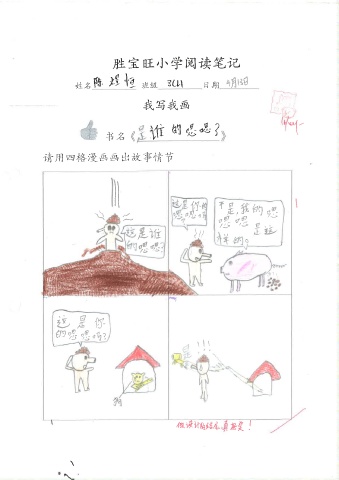 胜宝旺小学阅读笔记
姓名 陈 班级 3C4 日期
我写我画
书名《是谁的嗯嗯？》
请用四格漫画画出故事情节
这是谁
的嗯嗯?
这是你的
嗯嗯吗?
不是,我的嗯
嗯 是这
样的。
这是你
的嗯嗯吗?